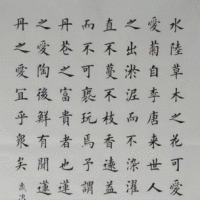 水陸草木之花可愛
愛菊自李唐來世人
之出淤泥而不染濯
直不蔓不枝香遠益
而不可褻玩焉予謂
丹花之富貴者也蓮
之愛陶後鮮有聞蓮
丹之愛宜乎衆矣